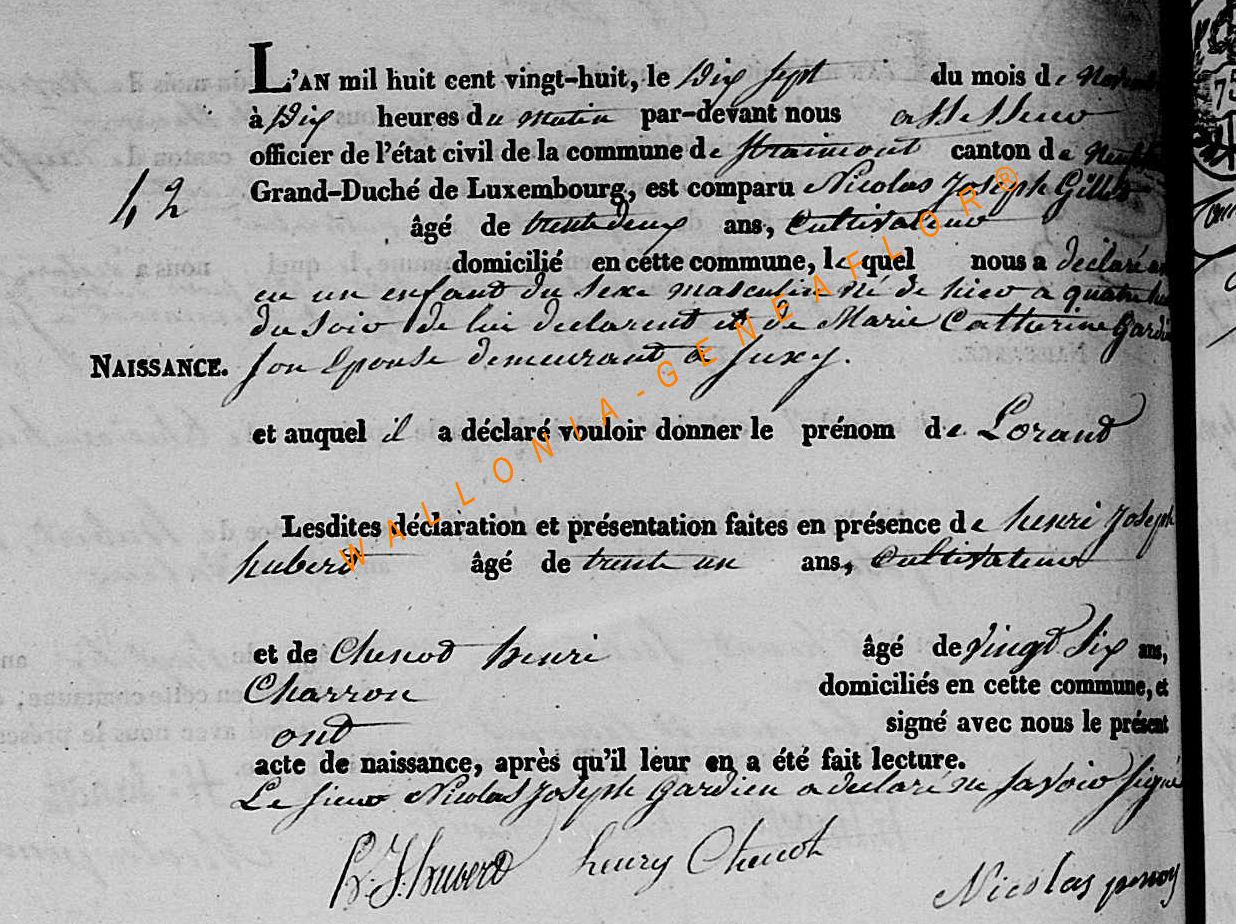 L'AN mil huit cent vingt-huit, le Dix Sept du mois de
à Dix heures du matin par-devant nous assesseur
officier de l'état civil de la commune de Straimont canton de
42
Grand-Duché de Luxembourg, est comparu Nicolas Joseph Gilles
âgé de trente deux ans, Cultivateur
domicilié en cette commune, le quel nous a déclaré
un enfant du Sexe masculin né de hier a quatre
du Soir de lui declarent et de Marie Catherine
NAISSANCE. son Epouse demeurant a Suxy.
et auquel il a déclaré vouloir donner le prénom de Lorand
Lesdites déclaration et présentation faites en présence de henri Joseph
huberd âgé de trente un ans, Cultivateur
et de Chenod henri âgé de vingt Six ans,
Charron domiciliés en cette commune, et
ont signé avec nous le présent
acte de naissance, après qu'il leur en a été fait lecture.
Le sieur Nicolas Joseph Gardien a declaré ne savoir signé
h. J. huberd henry Chenot Nicolas
WALLONIA-GENEAFLOR®